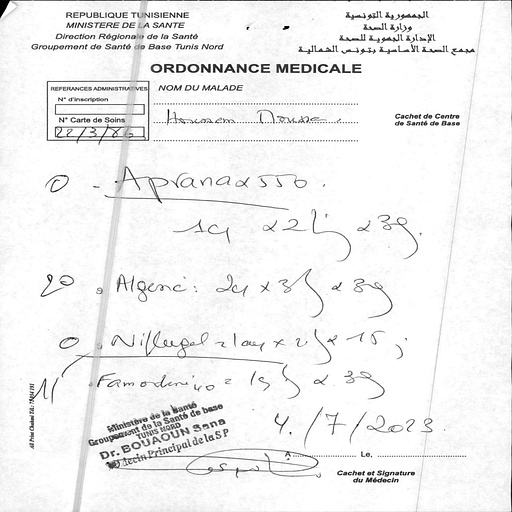 REPUBLIQUE TUNISIENNE
MINISTERE DE LA SANTE
Direction Régionale de la Santé
Groupement de Santé de Base Tunis Nord
الجمهورية التونسية
وزارة الصحة
الإدارة الجهوية للصحة
مجمع الصحة الأساسية بتونس الشمالية
ORDONNANCE MEDICALE
REFERANCES ADMINISTRATIVES
N° d'inscription
N° Carte de Soins
22/3/86
NOM DU MALADE
Cachet de Centre
de Santé de Base
Apranax 550.
x 2/j x 3j.
Algesic: x 3/j x 3j
Niflugel = x 15 j
= x 3j
4/7/2023
Ministère de la Santé
Groupement de la Santé de base
TUNIS NORD
Dr. BOUAOUN Sana
Médecin Principal de la SP
A Le,
Cachet et Signature
du Médecin